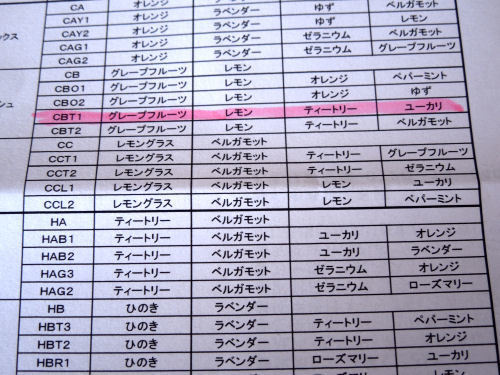 CA オレンジ ラベンダー
ックス CAY1 オレンジ ラベンダー ゆず ベルガモット
CAY2 オレンジ ラベンダー ゆず レモン
CAG1 オレンジ ラベンダー ゼラニウム ベルガモット
CAG2 オレンジ ラベンダー ゼラニウム グレープフルーツ
CB グレープフルーツ レモン
シュ CBO1 グレープフルーツ レモン オレンジ ペパーミント
CBO2 グレープフルーツ レモン オレンジ ゆず
CBT1 グレープフルーツ レモン ティートリー ユーカリ
CBT2 グレープフルーツ レモン ティートリー ベルガモット
CC レモングラス ベルガモット
CCT1 レモングラス ベルガモット ティートリー グレープフルーツ
CCT2 レモングラス ベルガモット ティートリー ゼラニウム
CCL1 レモングラス ベルガモット レモン ユーカリ
CCL2 レモングラス ベルガモット レモン ペパーミント
HA ティートリー ベルガモット
HAB1 ティートリー ベルガモット ユーカリ オレンジ
HAB2 ティートリー ベルガモット ユーカリ ラベンダー
HAG3 ティートリー ベルガモット ゼラニウム オレンジ
HAG2 ティートリー ベルガモット ゼラニウム ローズマリー
HB ひのき ラベンダー
HBT3 ひのき ラベンダー ティートリー ペパーミント
HBT2 ひのき ラベンダー ティートリー オレンジ
HBR1 ひのき ラベンダー ローズマリー ユーカリ
レモン